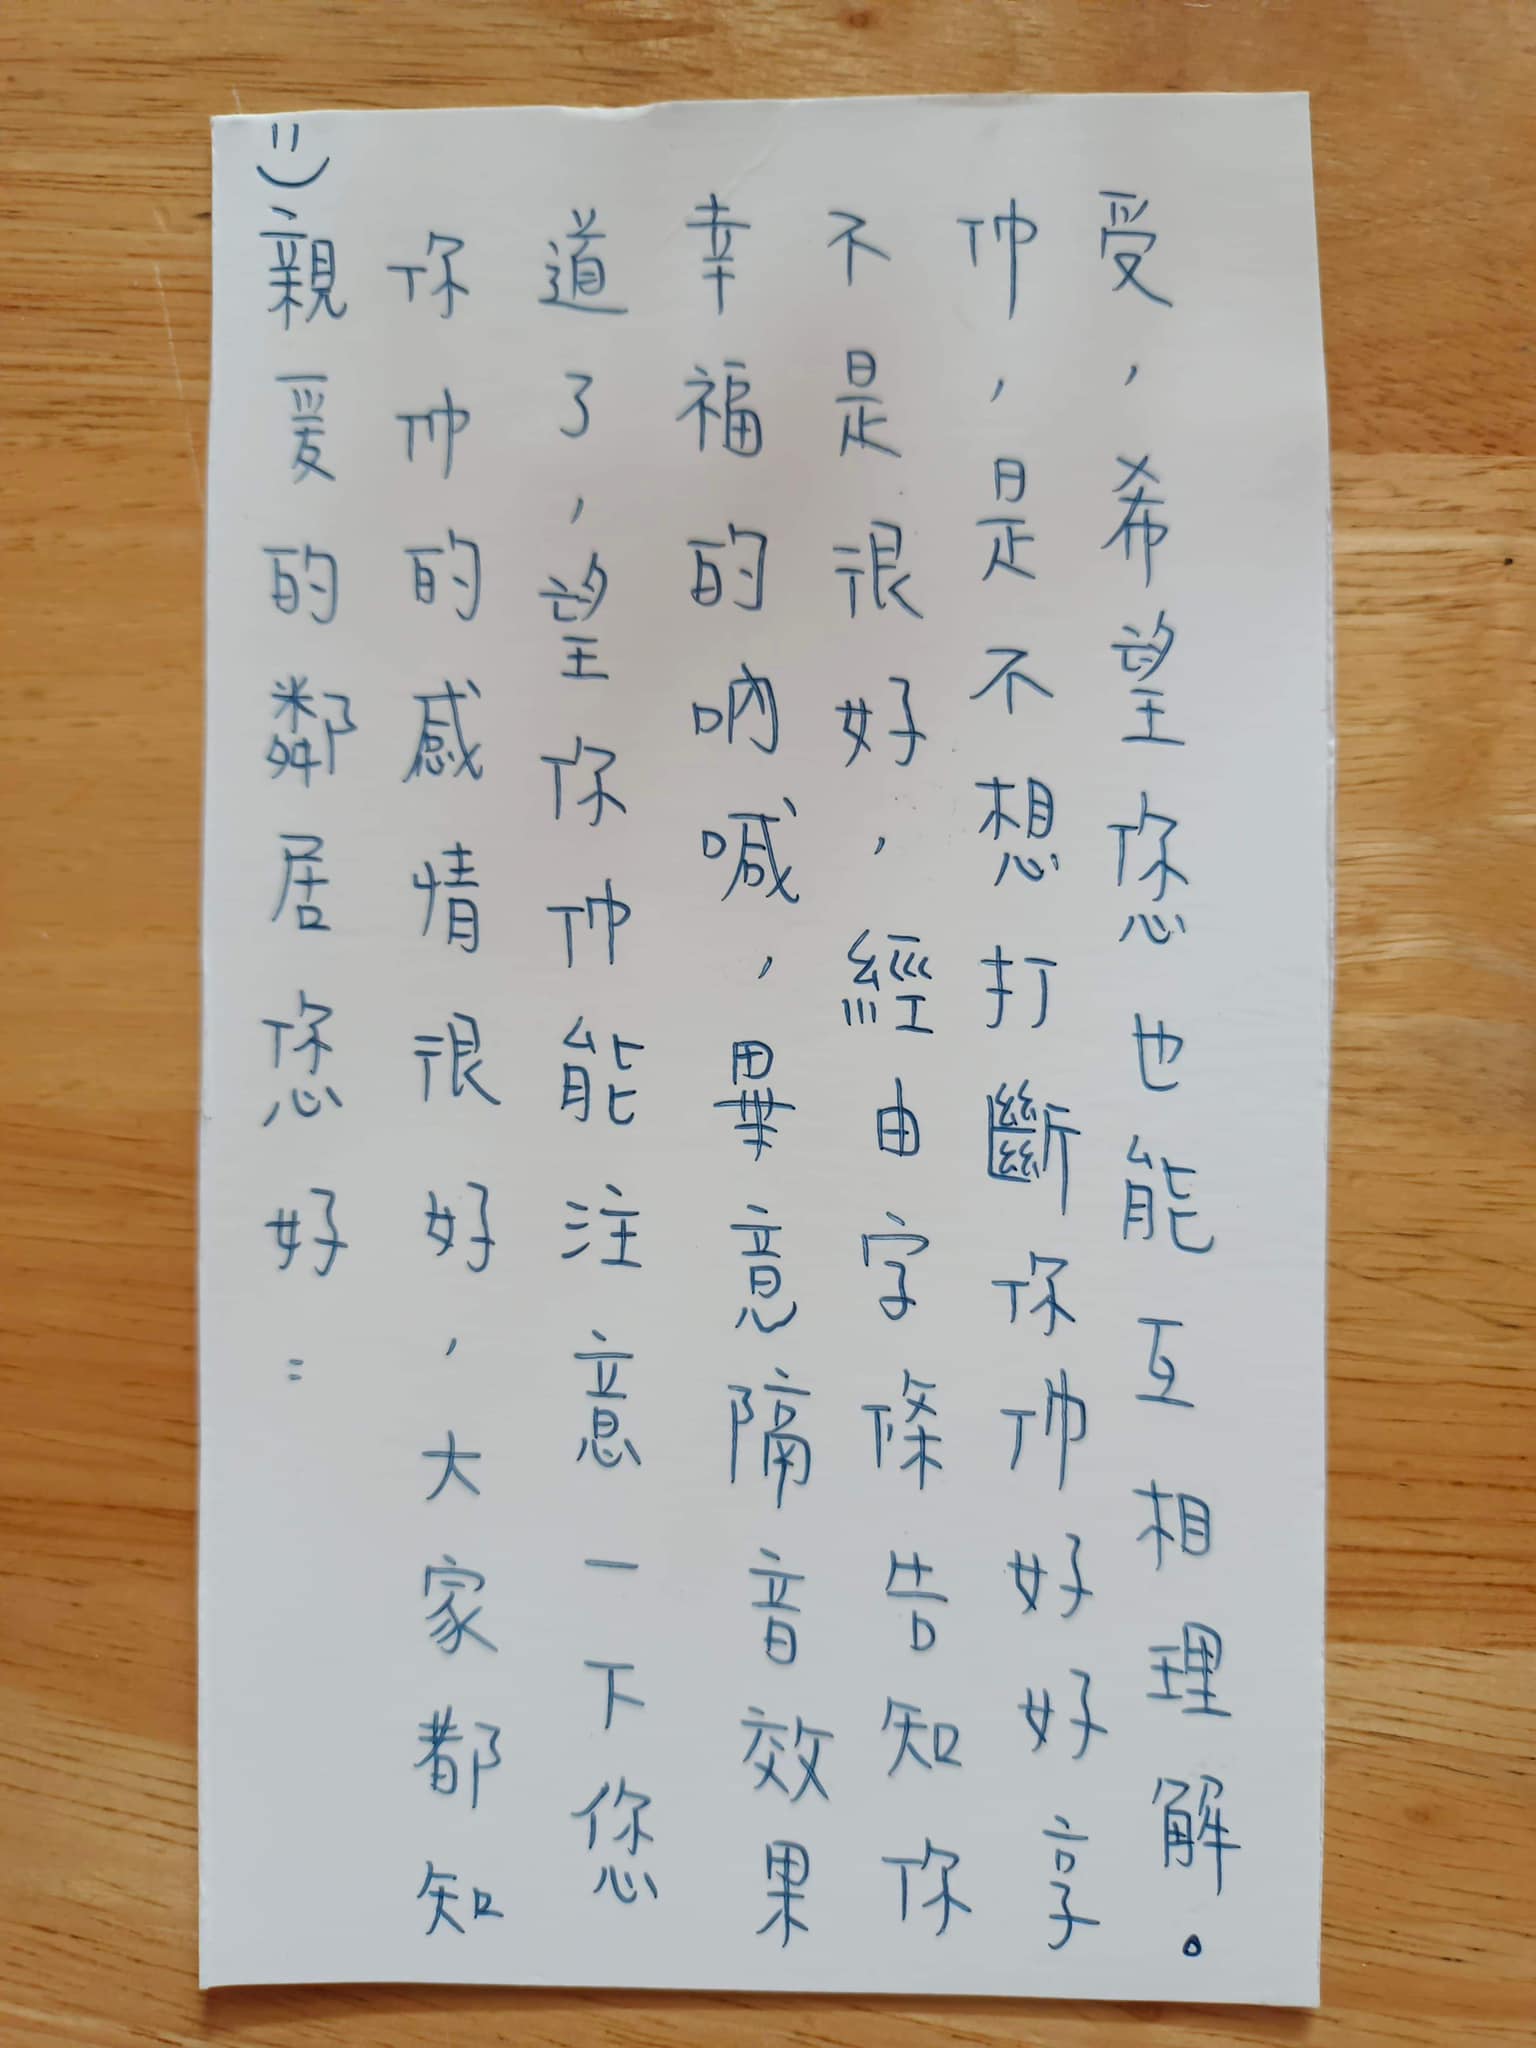 親愛的鄰居您好:
你们的感情很好,大家都知
道了,望你们能注意一下您
幸福的吶喊,畢意隔音效果
不是很好,經由字條告知你
们,是不想打斷你们好好享
受,希望您也能互相理解。